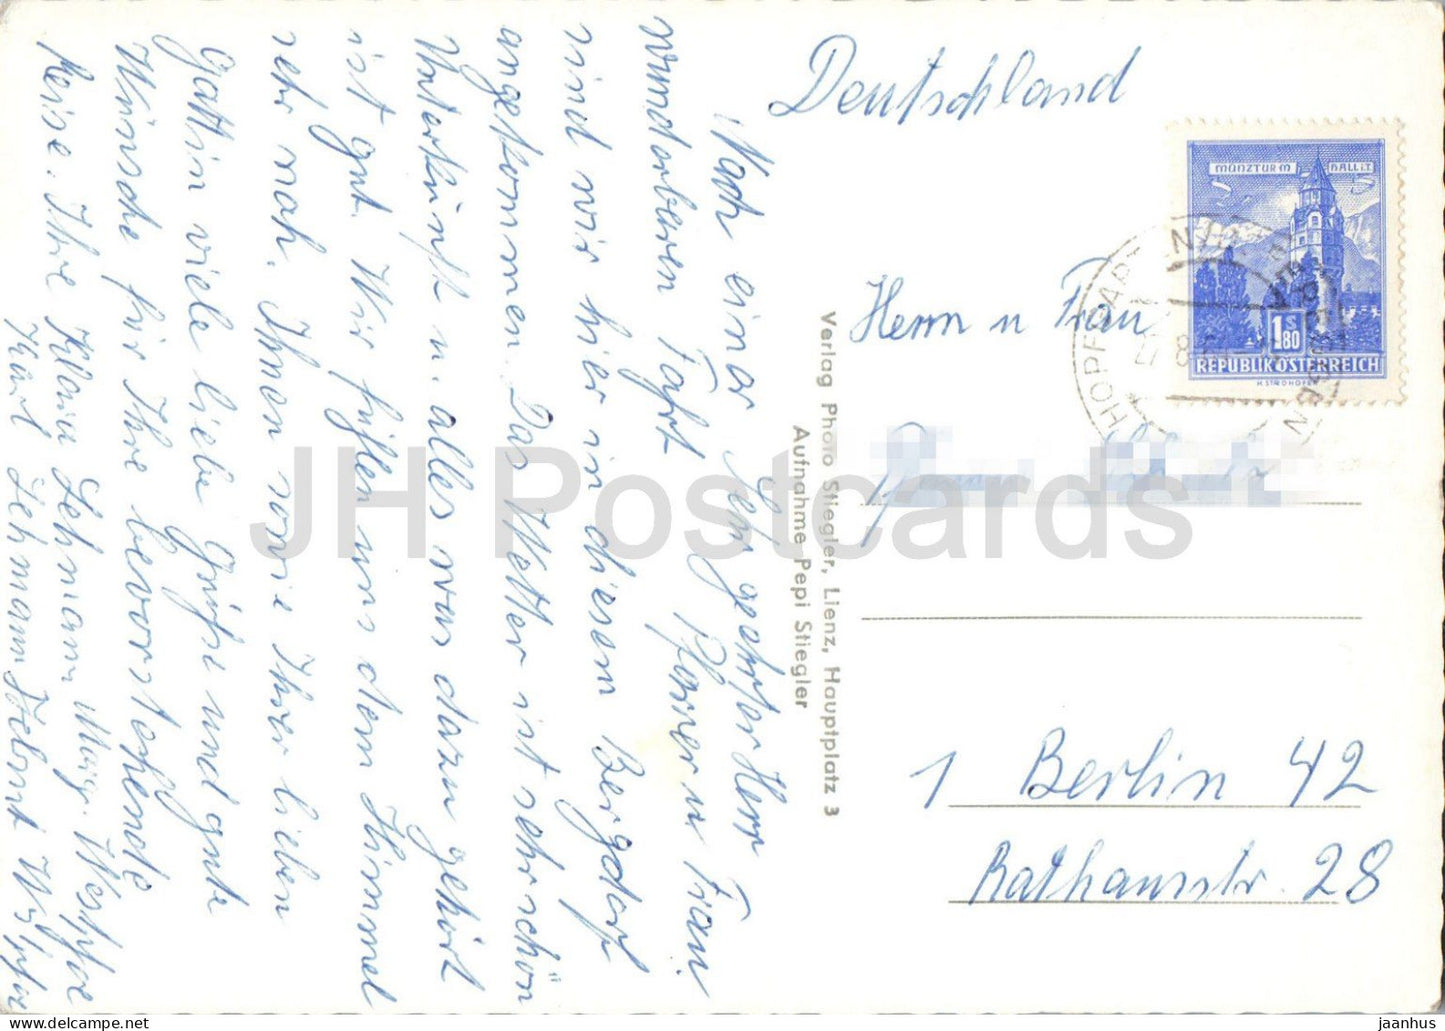 Deutschland
MÜNZTURM HALL i.T.
S
1.80
REPUBLIK ÖSTERREICH
H. STROHOFER
HOPFGARTEN
Herrn u Frau
1 Berlin 42
Rathausstr. 28
Verlag Photo Stiegler, Lienz, Hauptplatz 3
Aufnahme Pepi Stiegler
Sehr geehrter Herr
Pfarrer u Frau
Nach einer
wunderbaren Fahrt
sind wir hier in diesem Bergdorf
angekommen. Das Wetter ist sehr schön
Unterkunft u. alles was dazu gehört
ist gut. Wir fühlen uns dem Himmel
sehr nah. Ihnen sowie Ihrer lieben
Gattin viele liebe Grüße und gute
Wünsche für Ihre bevorstehende
Reise. Ihre Klara Lehmann
Karl Lehmann
JH Postcards
delcampe.net
jaanhus